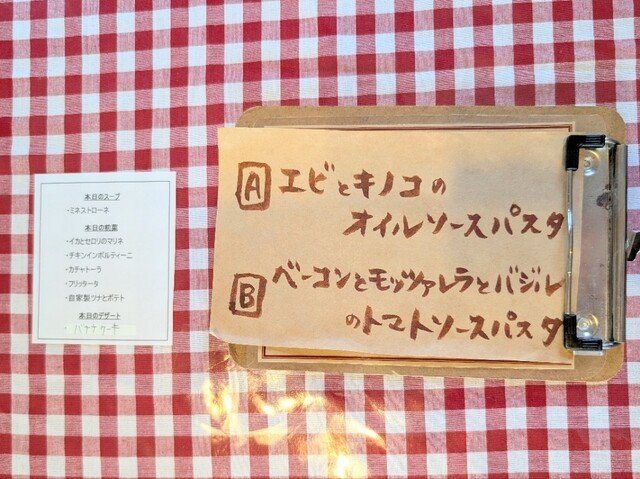 本日のスープ
・ミネストローネ
本日の前菜
・イカとセロリのマリネ
・チキンインボルティーニ
・カチャトーラ
・フリッタータ
・自家製ツナとポテト
本日のデザート
・バナナケーキ
A エビとキノコの
オイルソースパスタ
B ベーコンとモッツァレラとバジル
のトマトソースパスタ